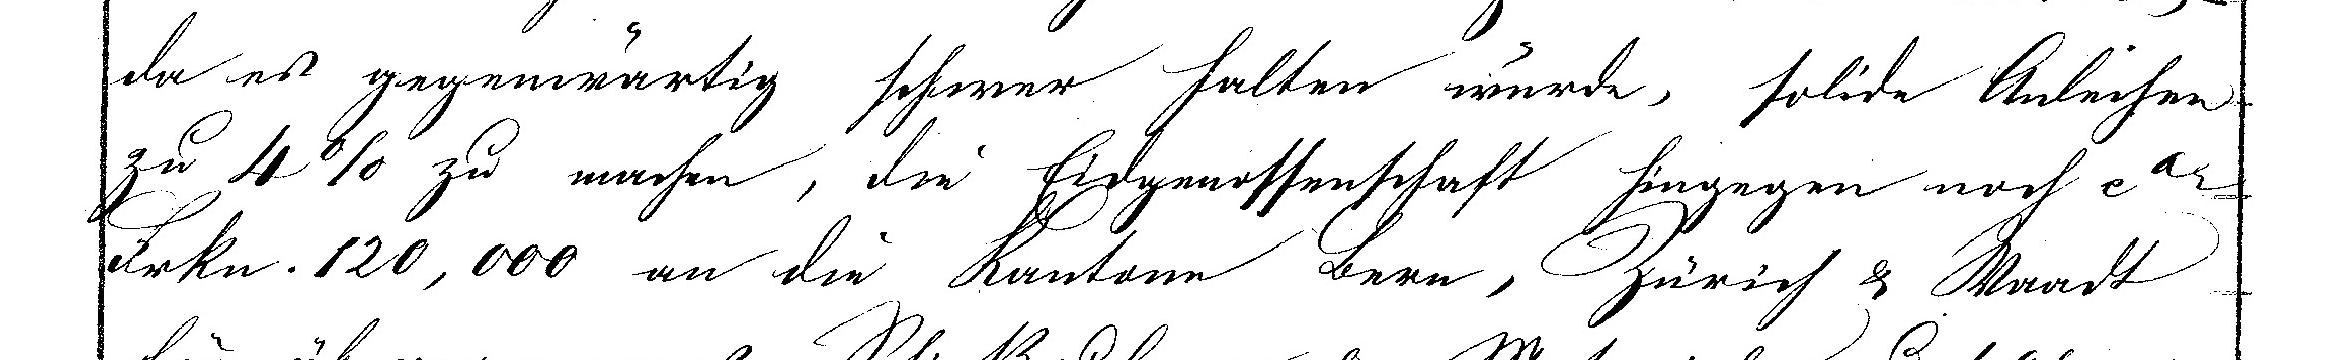 da es gegenwärtig schwer halten würde, solide Anleihen
zu 4% zu machen, die Eidgenossenschaft hingegen noch ca
Frkn. 120,000 an die Kantone Bern, Zürich & Waadt